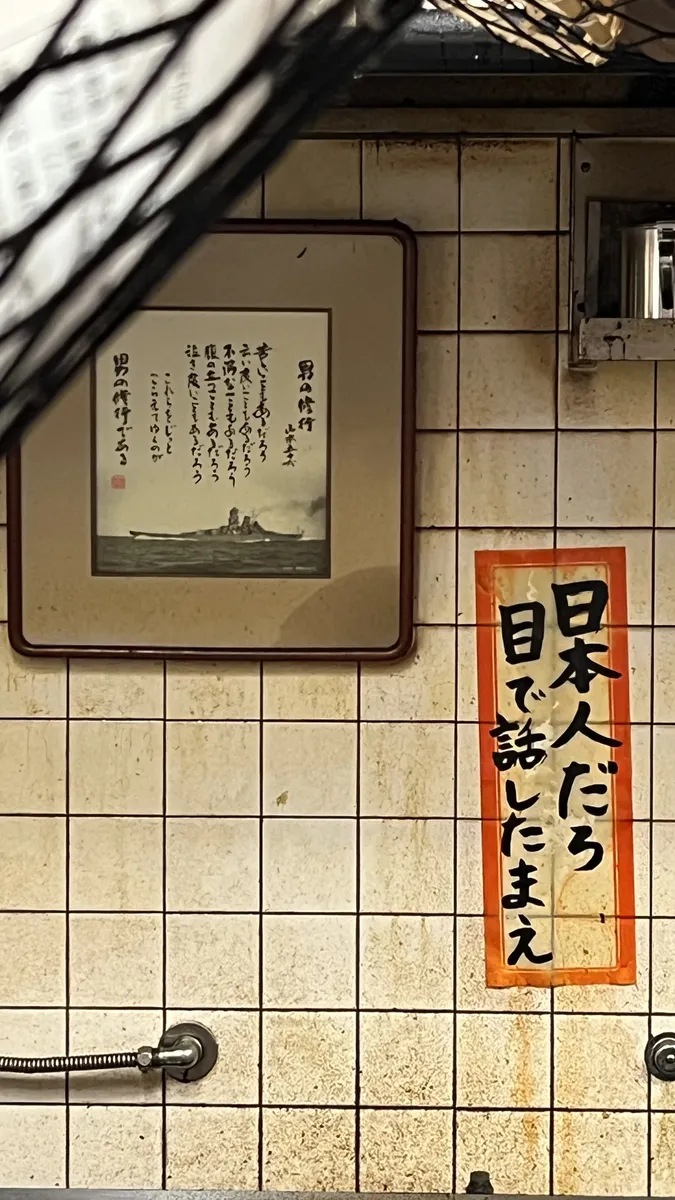 男の修行
山本五十六
苦しいこともあるだろう
云い度いこともあるだろう
不満なこともあるだろう
腹の立つこともあるだろう
泣き度いこともあるだろう
これらをじっと
こらえてゆくのが
男の修行である
日本人だろ
目で話したまえ